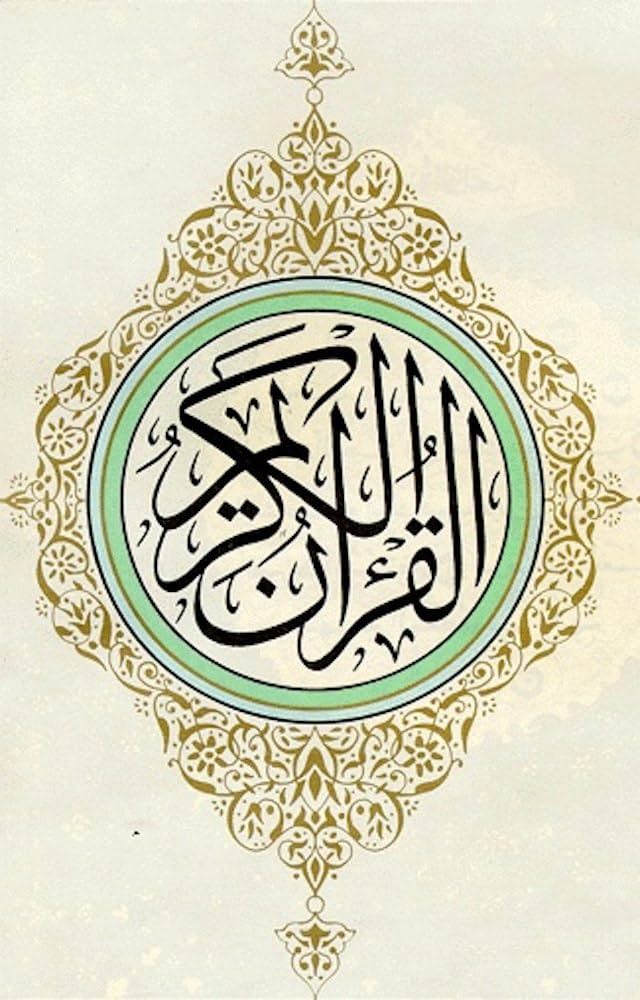 القرءان الكريم